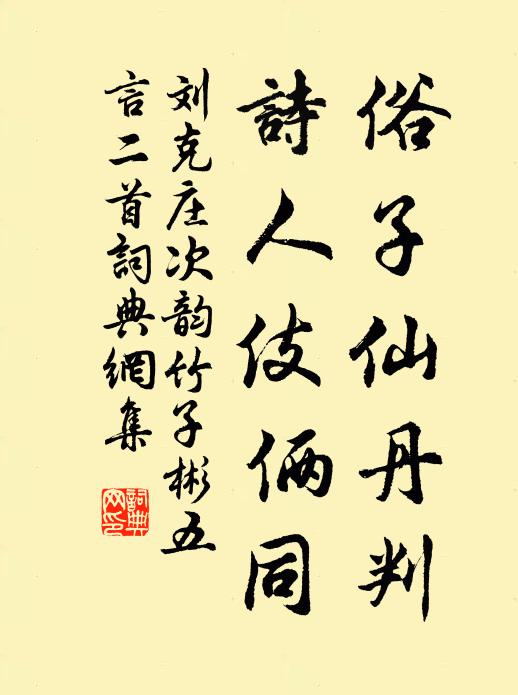 俗子仙丹判
詩人伎俩同
刘克庄次韵竹子彬五
言二首詞典網集
詞典
网印